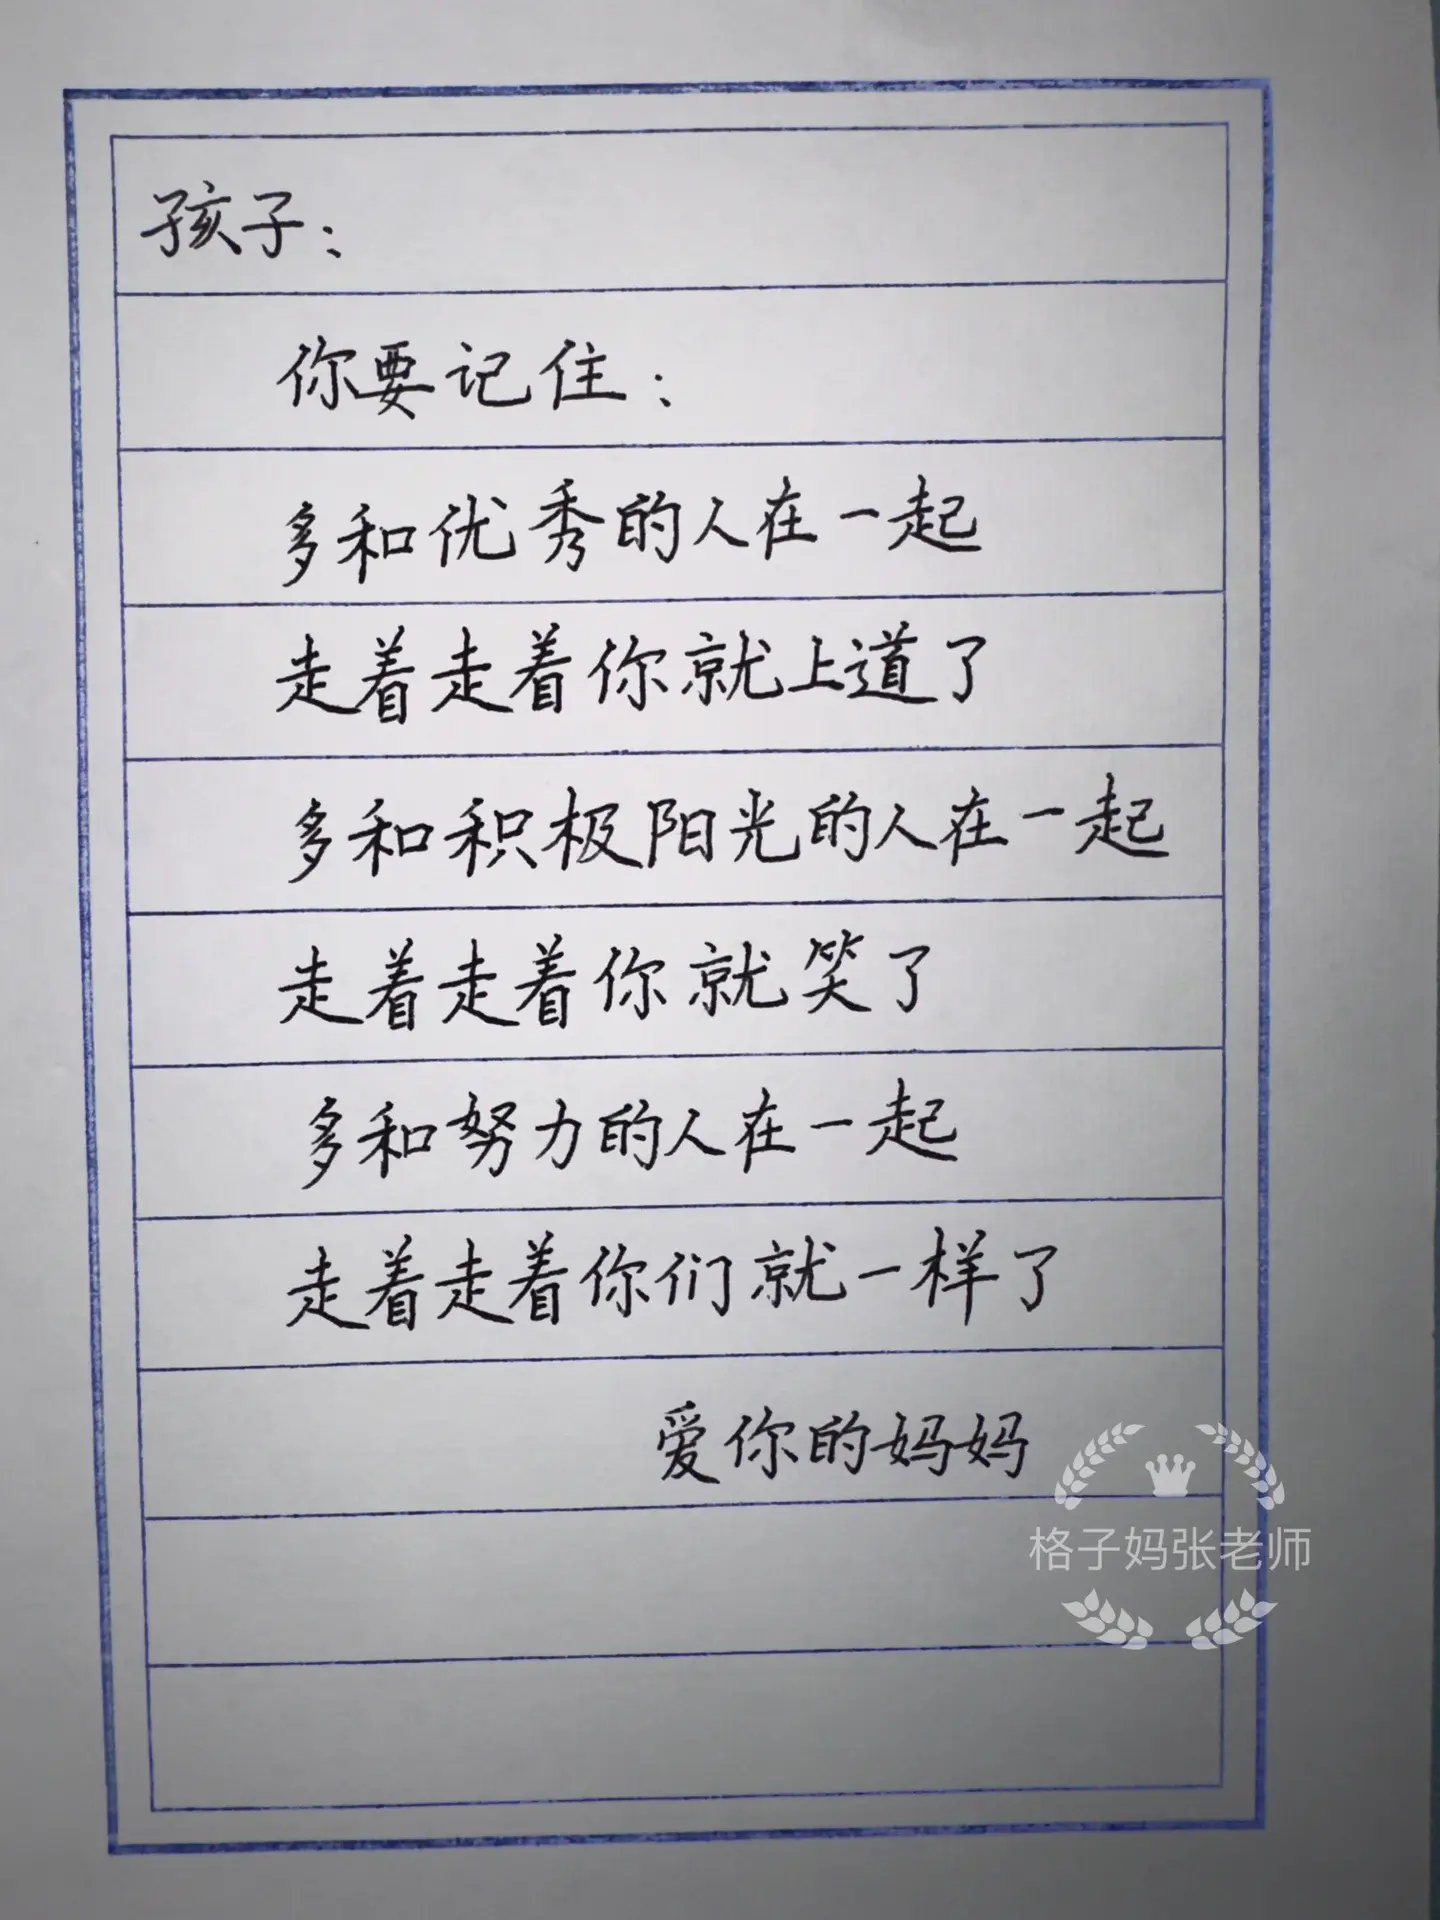 孩子：
你要记住：
多和优秀的人在一起
走着走着你就上道了
多和积极阳光的人在一起
走着走着你就笑了
多和努力的人在一起
走着走着你们就一样了
爱你的妈妈
格子妈张老师